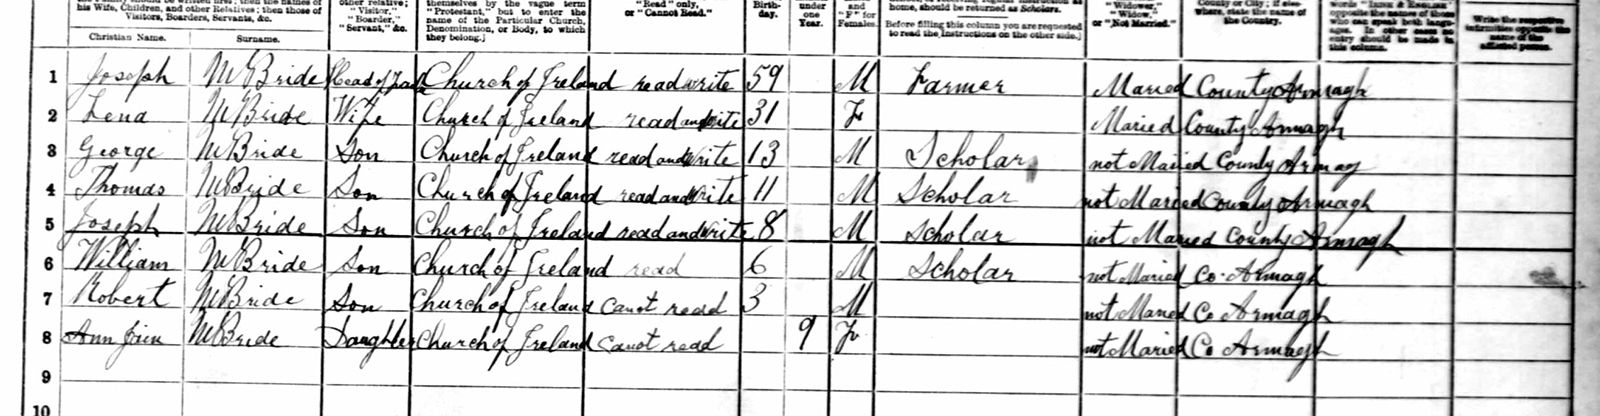 his Wife, Children, and other Relatives; then the names of
Visitors, Boarders, Servants, &c.
Christian Name. Surname.
other relative;
"Visitor,"
"Boarder,"
"Servant," &c.
themselves by the vague term
"Protestant," but to enter the
name of the Particular Church,
Denomination, or Body, to which
they belong.]
"Read" only,
or "Cannot Read."
Birth-
day.
under
one
Year.
and
"F" for
Females.
home, should be returned as Scholars.
Before filling this column you are requested
to read the Instructions on the other side.]
"Widower,"
"Widow,"
or "Not Married."
County or City; if else-
where, state the name of
the Country.
words "IRISH & ENGLISH"
opposite the names of those
who can speak both langu-
ages. In other cases no
entry should be made in
this column.
Write the respective
infirmities opposite the
name of the
afflicted person.
1 Joseph McBride Head of Family Church of Ireland read write 59 M Farmer Maried County Armagh
2 Lena McBride Wife Church of Ireland read and write 31 F Maried County Armagh
3 George McBride Son Church of Ireland read and write 13 M Scholar not Maried County Armag
4 Thomas McBride Son Church of Ireland read and write 11 M Scholar not Maried County Armagh
5 Joseph McBride Son Church of Ireland read and write 8 M Scholar not Maried County Armagh
6 William McBride Son Church of Ireland read 6 M Scholar not Maried Co. Armagh
7 Robert McBride Son Church of Ireland canot read 3 M not Maried Co Armagh
8 Ann Jain McBride Daughter Church of Ireland canot read 9 F not Maried Co Armagh
9
10